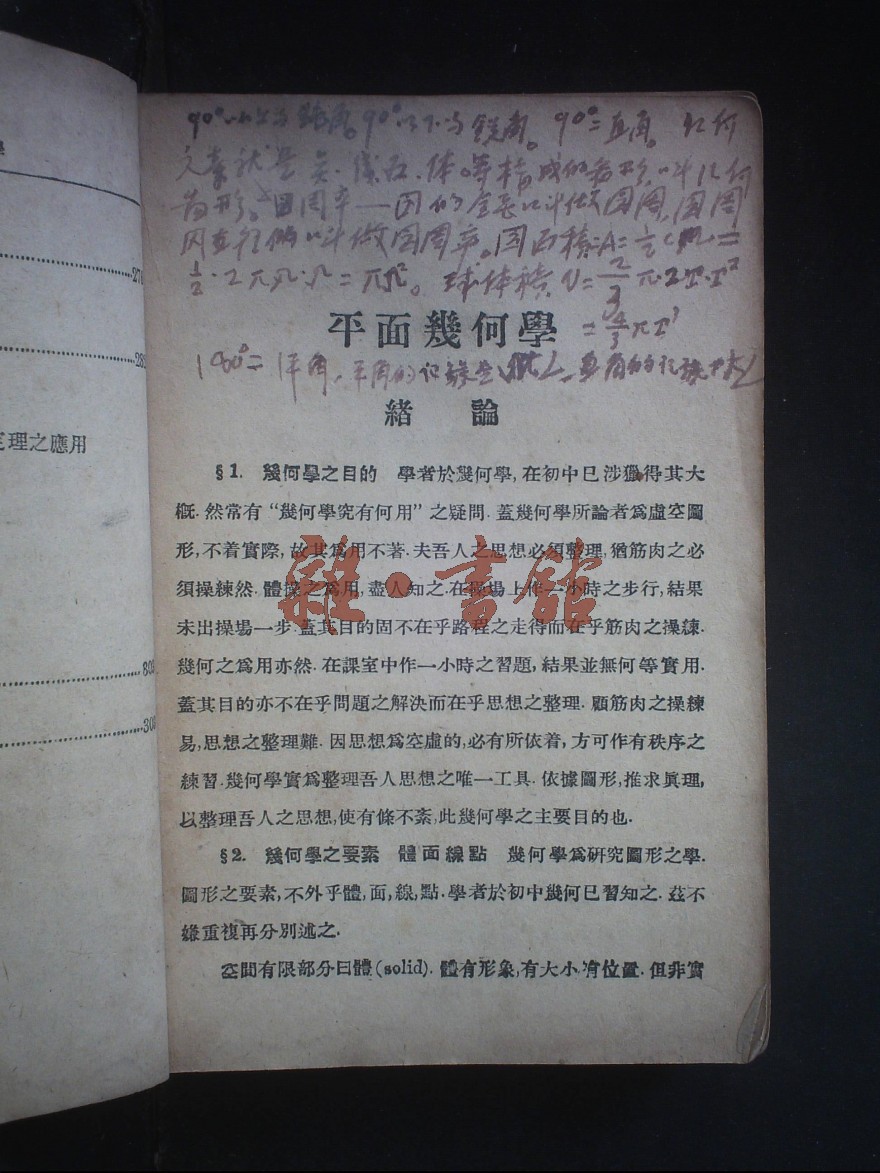 學
270
28
定理之應用
300
90°以上为鈍角。90°以下为銳角。90°=直角。几何
体。等構成的
圓周率——
圓周率。圓面積:A=
½·2πr·r=πr²。球体積 V=2/3 π·2r·r²
=4/3 πr³
平面幾何學
180°=1平角,平角的
緒 論
§1. 幾何學之目的 學者於幾何學,在初中已涉獵得其大
概. 然常有“幾何學究有何用”之疑問. 蓋幾何學所論者爲虛空圖
形,不着實際,故其爲用不著. 夫吾人之思想必須整理,猶筋肉之必
須操練然. 體操之爲用,盡人知之. 在操場上作一小時之步行,結果
未出操場一步. 蓋其目的固不在乎路程之走待而在乎筋肉之操練.
幾何之爲用亦然. 在課室中作一小時之習題,結果並無何等實用.
蓋其目的亦不在乎問題之解決而在乎思想之整理. 顧筋肉之操練
易,思想之整理難. 因思想爲空虛的,必有所依着,方可作有秩序之
練習. 幾何學實爲整理吾人思想之唯一工具. 依據圖形,推求眞理,
以整理吾人之思想,使有條不紊,此幾何學之主要目的也.
§2. 幾何學之要素 體面線點 幾何學爲研究圖形之學.
圖形之要素,不外乎體,面,線,點. 學者於初中幾何已習知之. 茲不
嫌重複再分別述之.
空間有限部分曰體(solid). 體有形象,有大小,有位置. 但非實
雜·書館